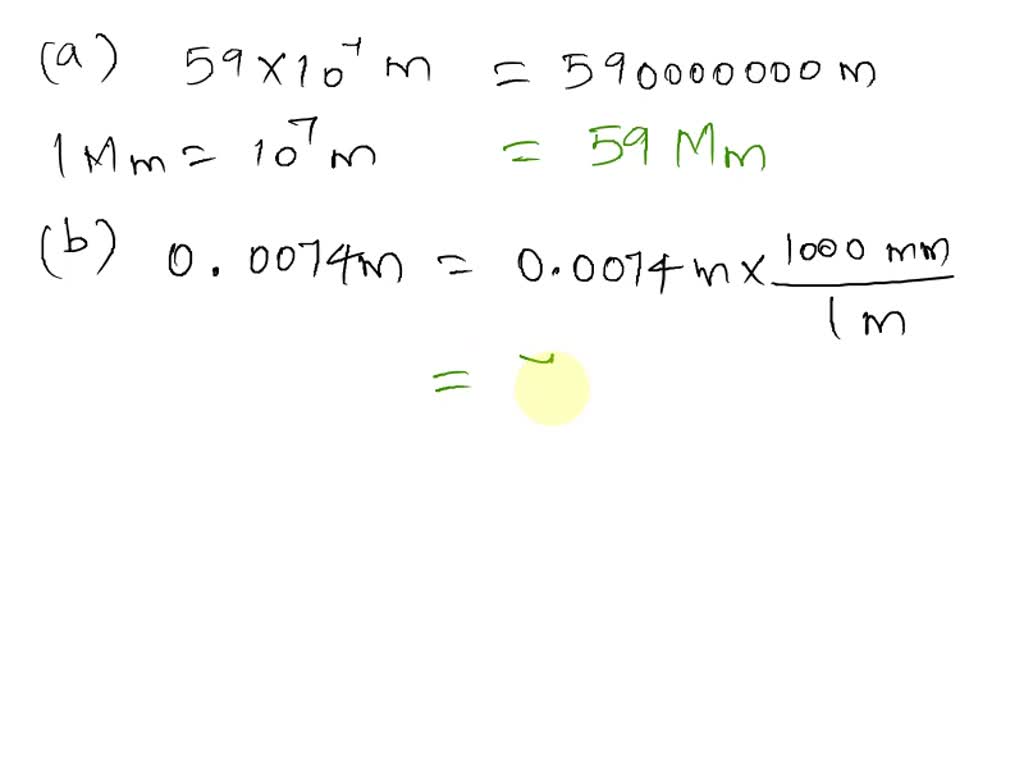 (a) 59×10⁷ m = 590000000 m
1 Mm = 10⁷ m = 59 Mm
(b) 0.0074m = 0.0074 m × 1000 mm / 1 m
=